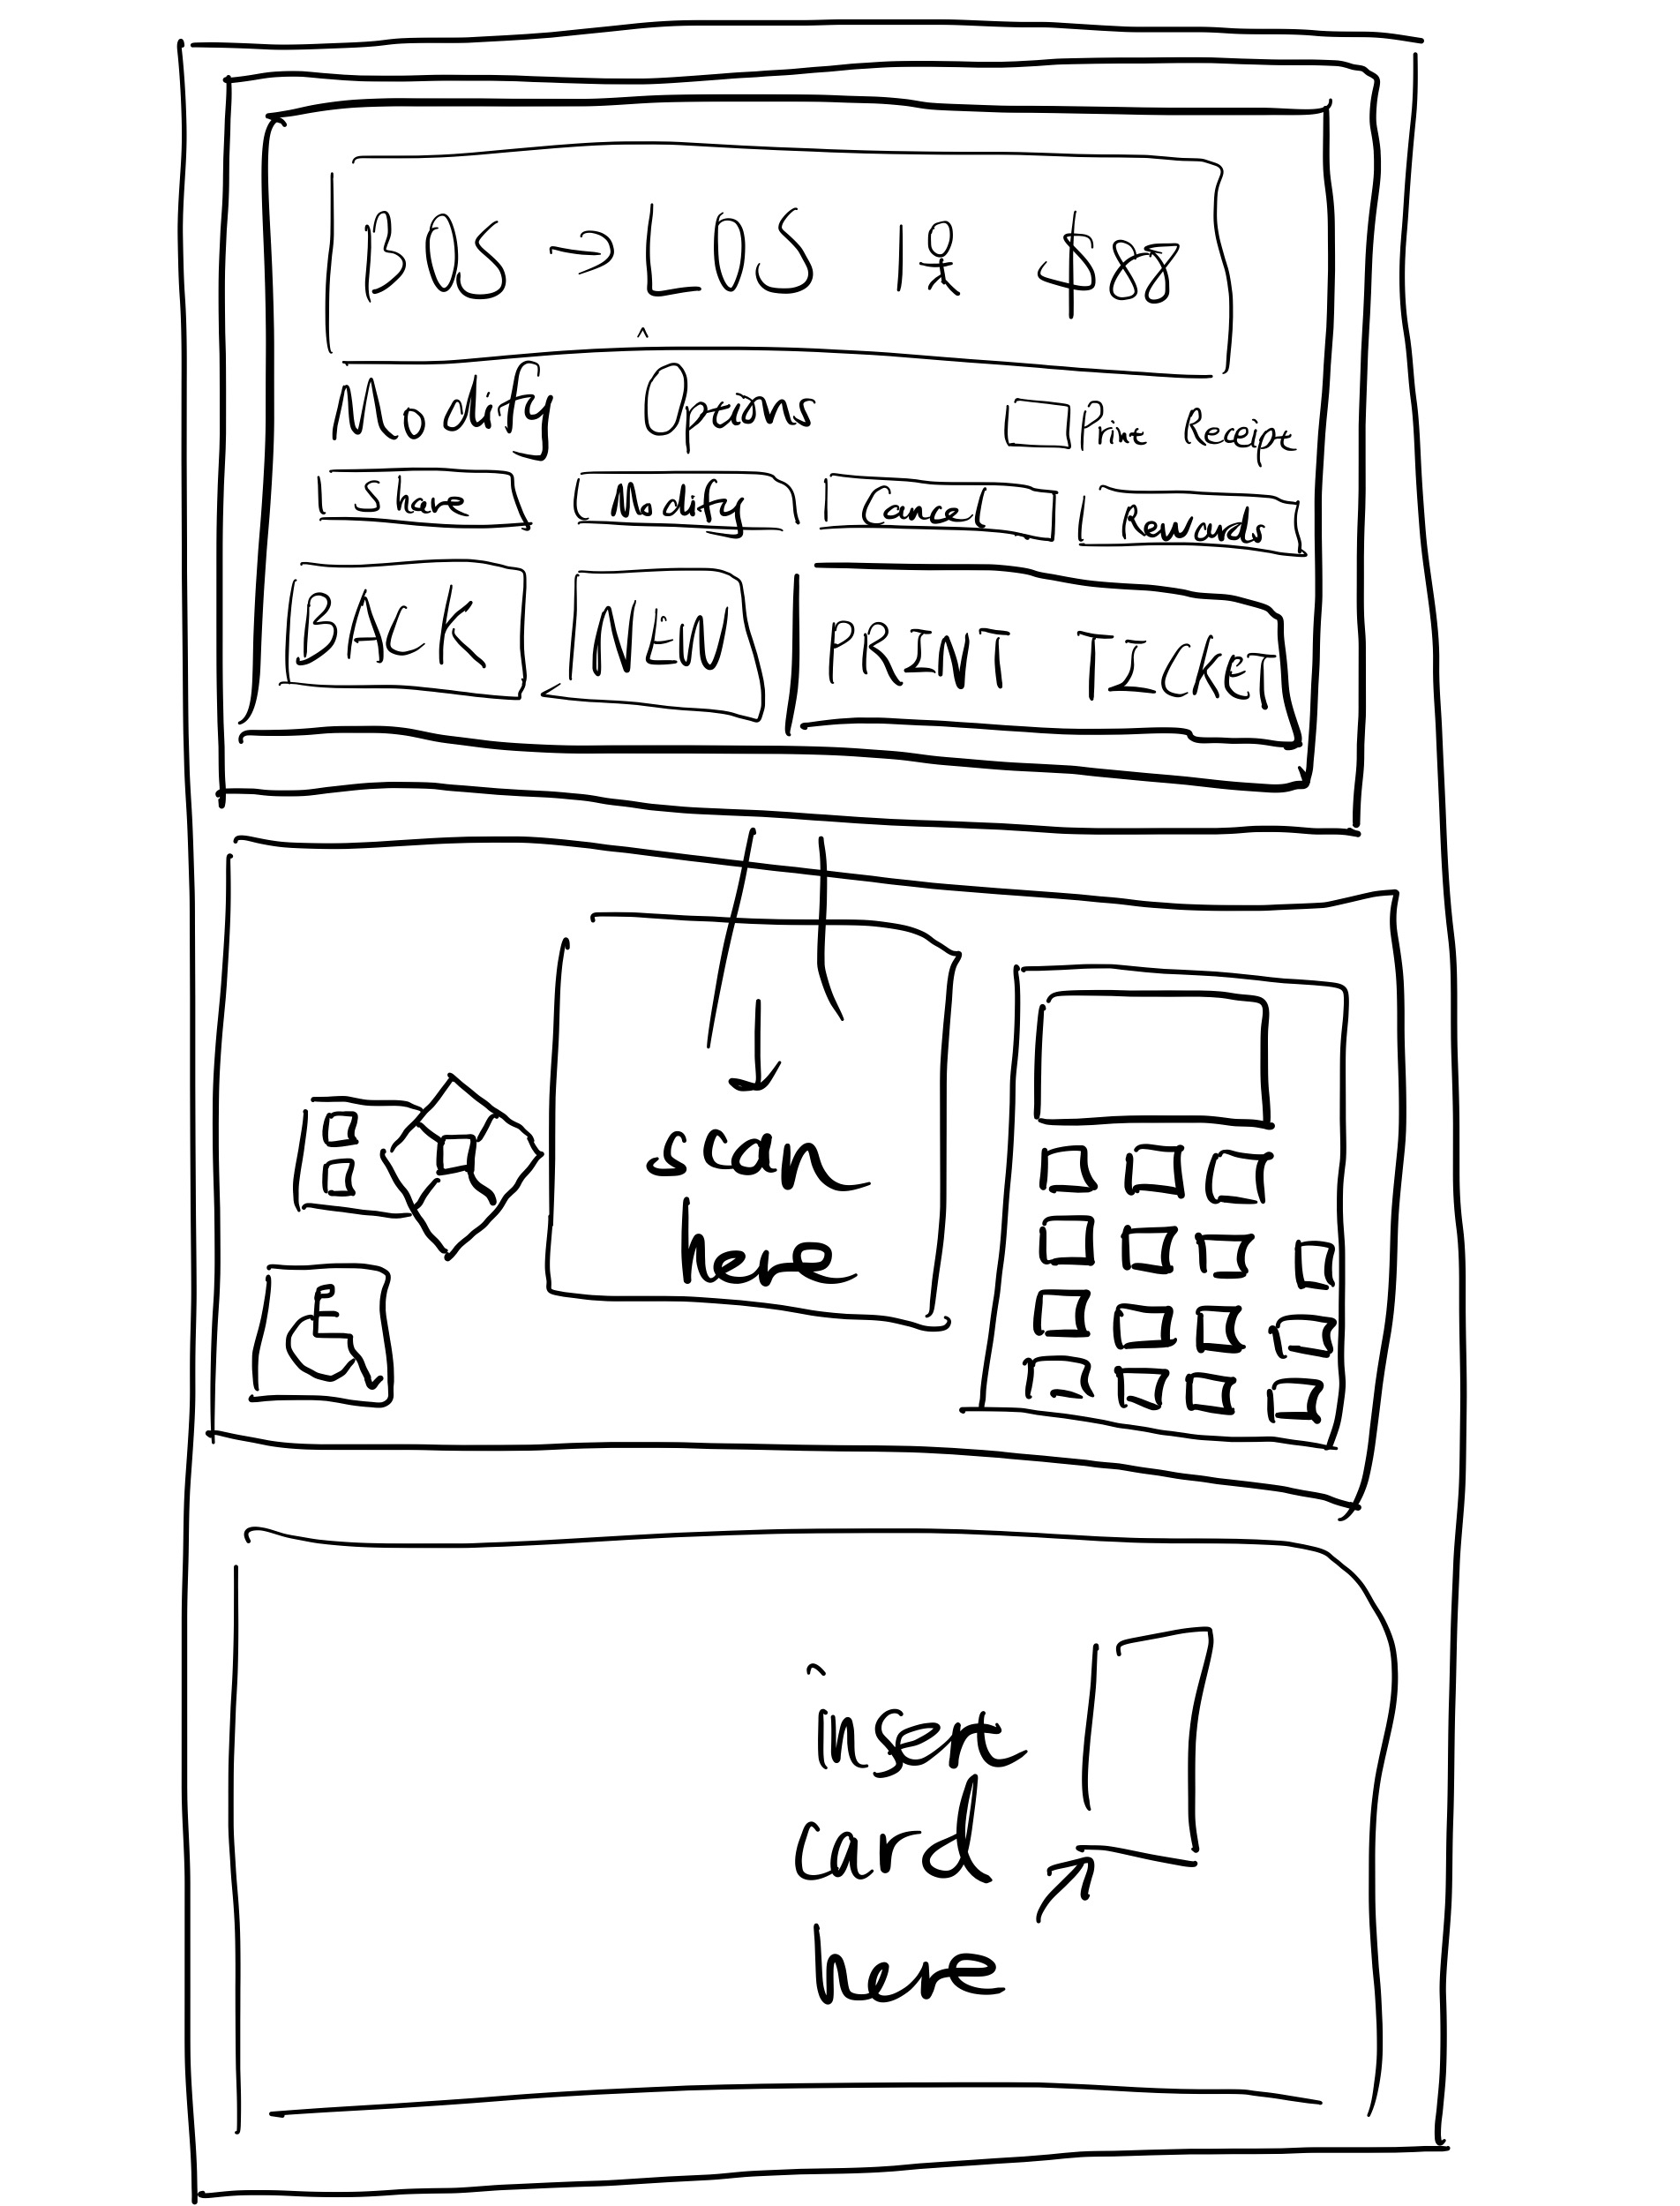 BOS → LOS 1 $88
Modify Options Print Receipt
Share Modify Cancel Rewards
BACK NEW PRINT TICKET
scan
here
insert
card
here